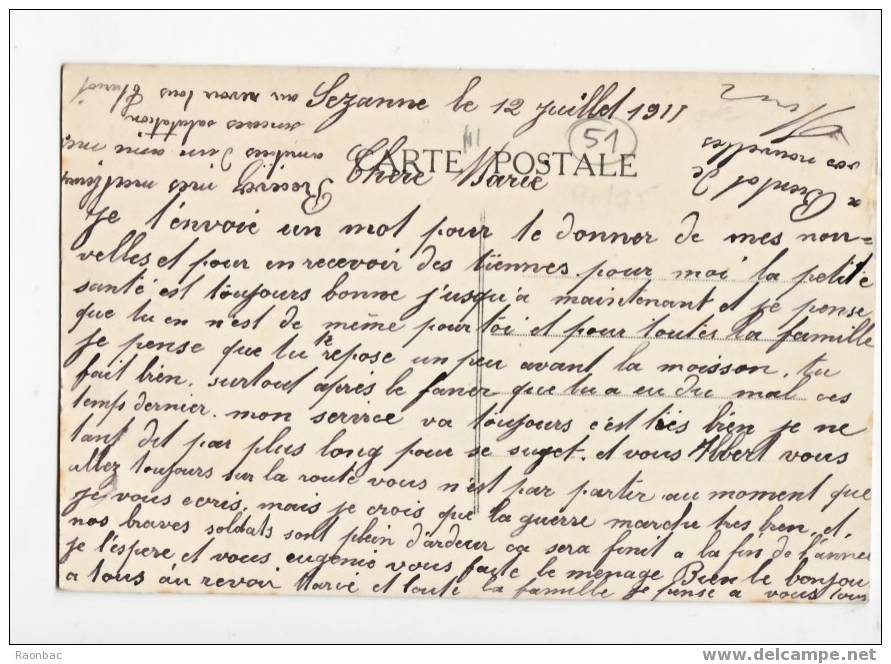 Sezanne le 12 Juillet 1915
51
CARTE POSTALE
Chere Marie
Je t'envoie un mot pour te donner de mes nou=
velles et pour en recevoir des tiennes. pour moi la petite
santé est toujours bonne j'usqu'a maintenant et je pense
que tu en n'est de même pour toi et pour toutes ta famille
je pense que tu te repose un peu avant la moisson, tu
fait bien. surtout aprés le faner que tu a eu du mal ces
temps dernier. mon service va toujours c'est tres bien je ne
tant dit pas plus long pour se sujet. et vous Albert vous
allez toujours sur la route vous n'est pas partir au moment que
je vous ecris, mais je crois que la guerre marche tres bien, et
nos braves soldats sont plein d'ardeur ca sera finit a la fin de l'année
je l'espere et vous eugenie vous faite le menage Bien le bonjou
a tous au revoir Marie et toute la famille je pense a vous tous
vos nouvelles
Recevez mes meilleures
amitiés d'un amie
sinceres salutation
au revoir tous
Delcampe.net
Raonbac